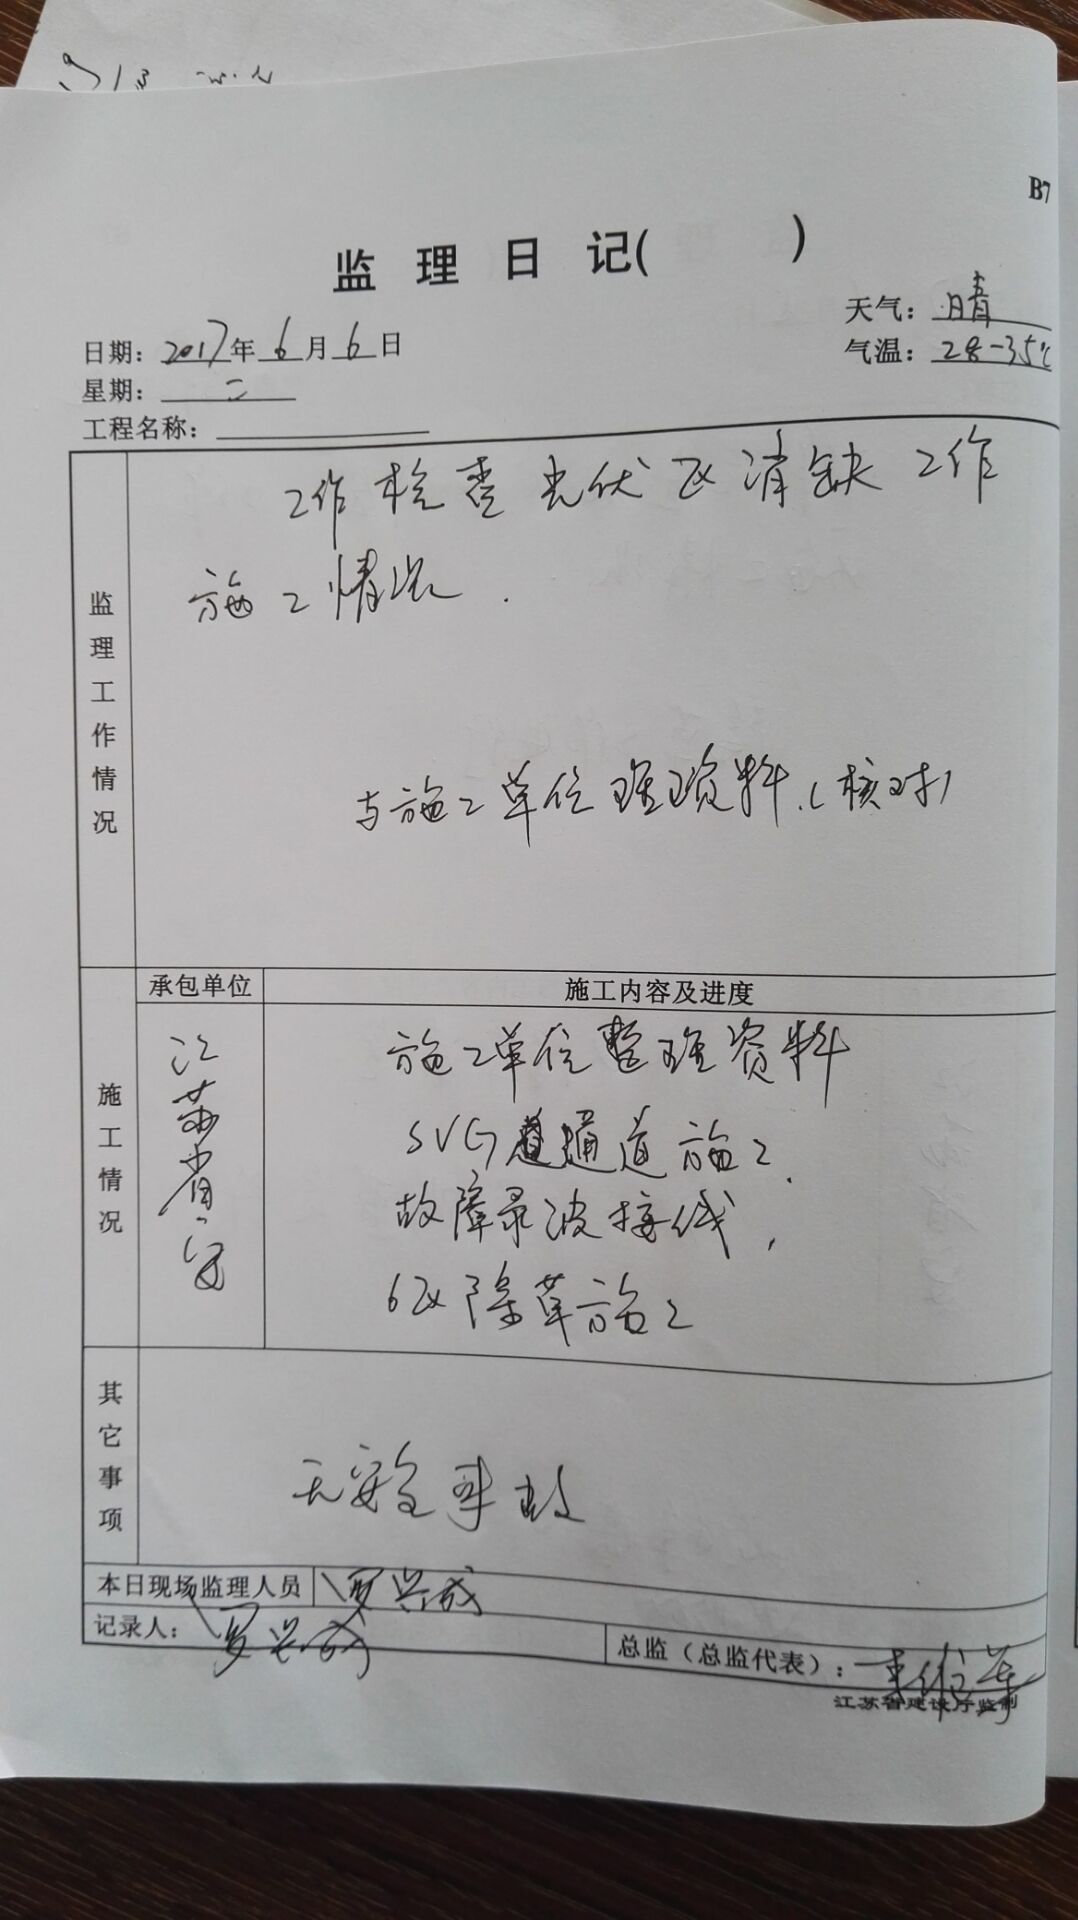 B7
监理日记( )
日期：2017年6月6日
天气：晴
星期：二
气温：28-35℃
工程名称：
监理工作情况
工作检查光伏区消缺工作
施工情况.
与施工单位理理资料.(核对)
施工情况
承包单位
施工内容及进度
江苏省安
施工单位整理资料
SVG 通道施工.
故障录波接线,
6区除草施工
其它事项
无安全事故
本日现场监理人员 贾兴成
记录人：贾兴成
总监（总监代表）：
江苏省建设厅监制